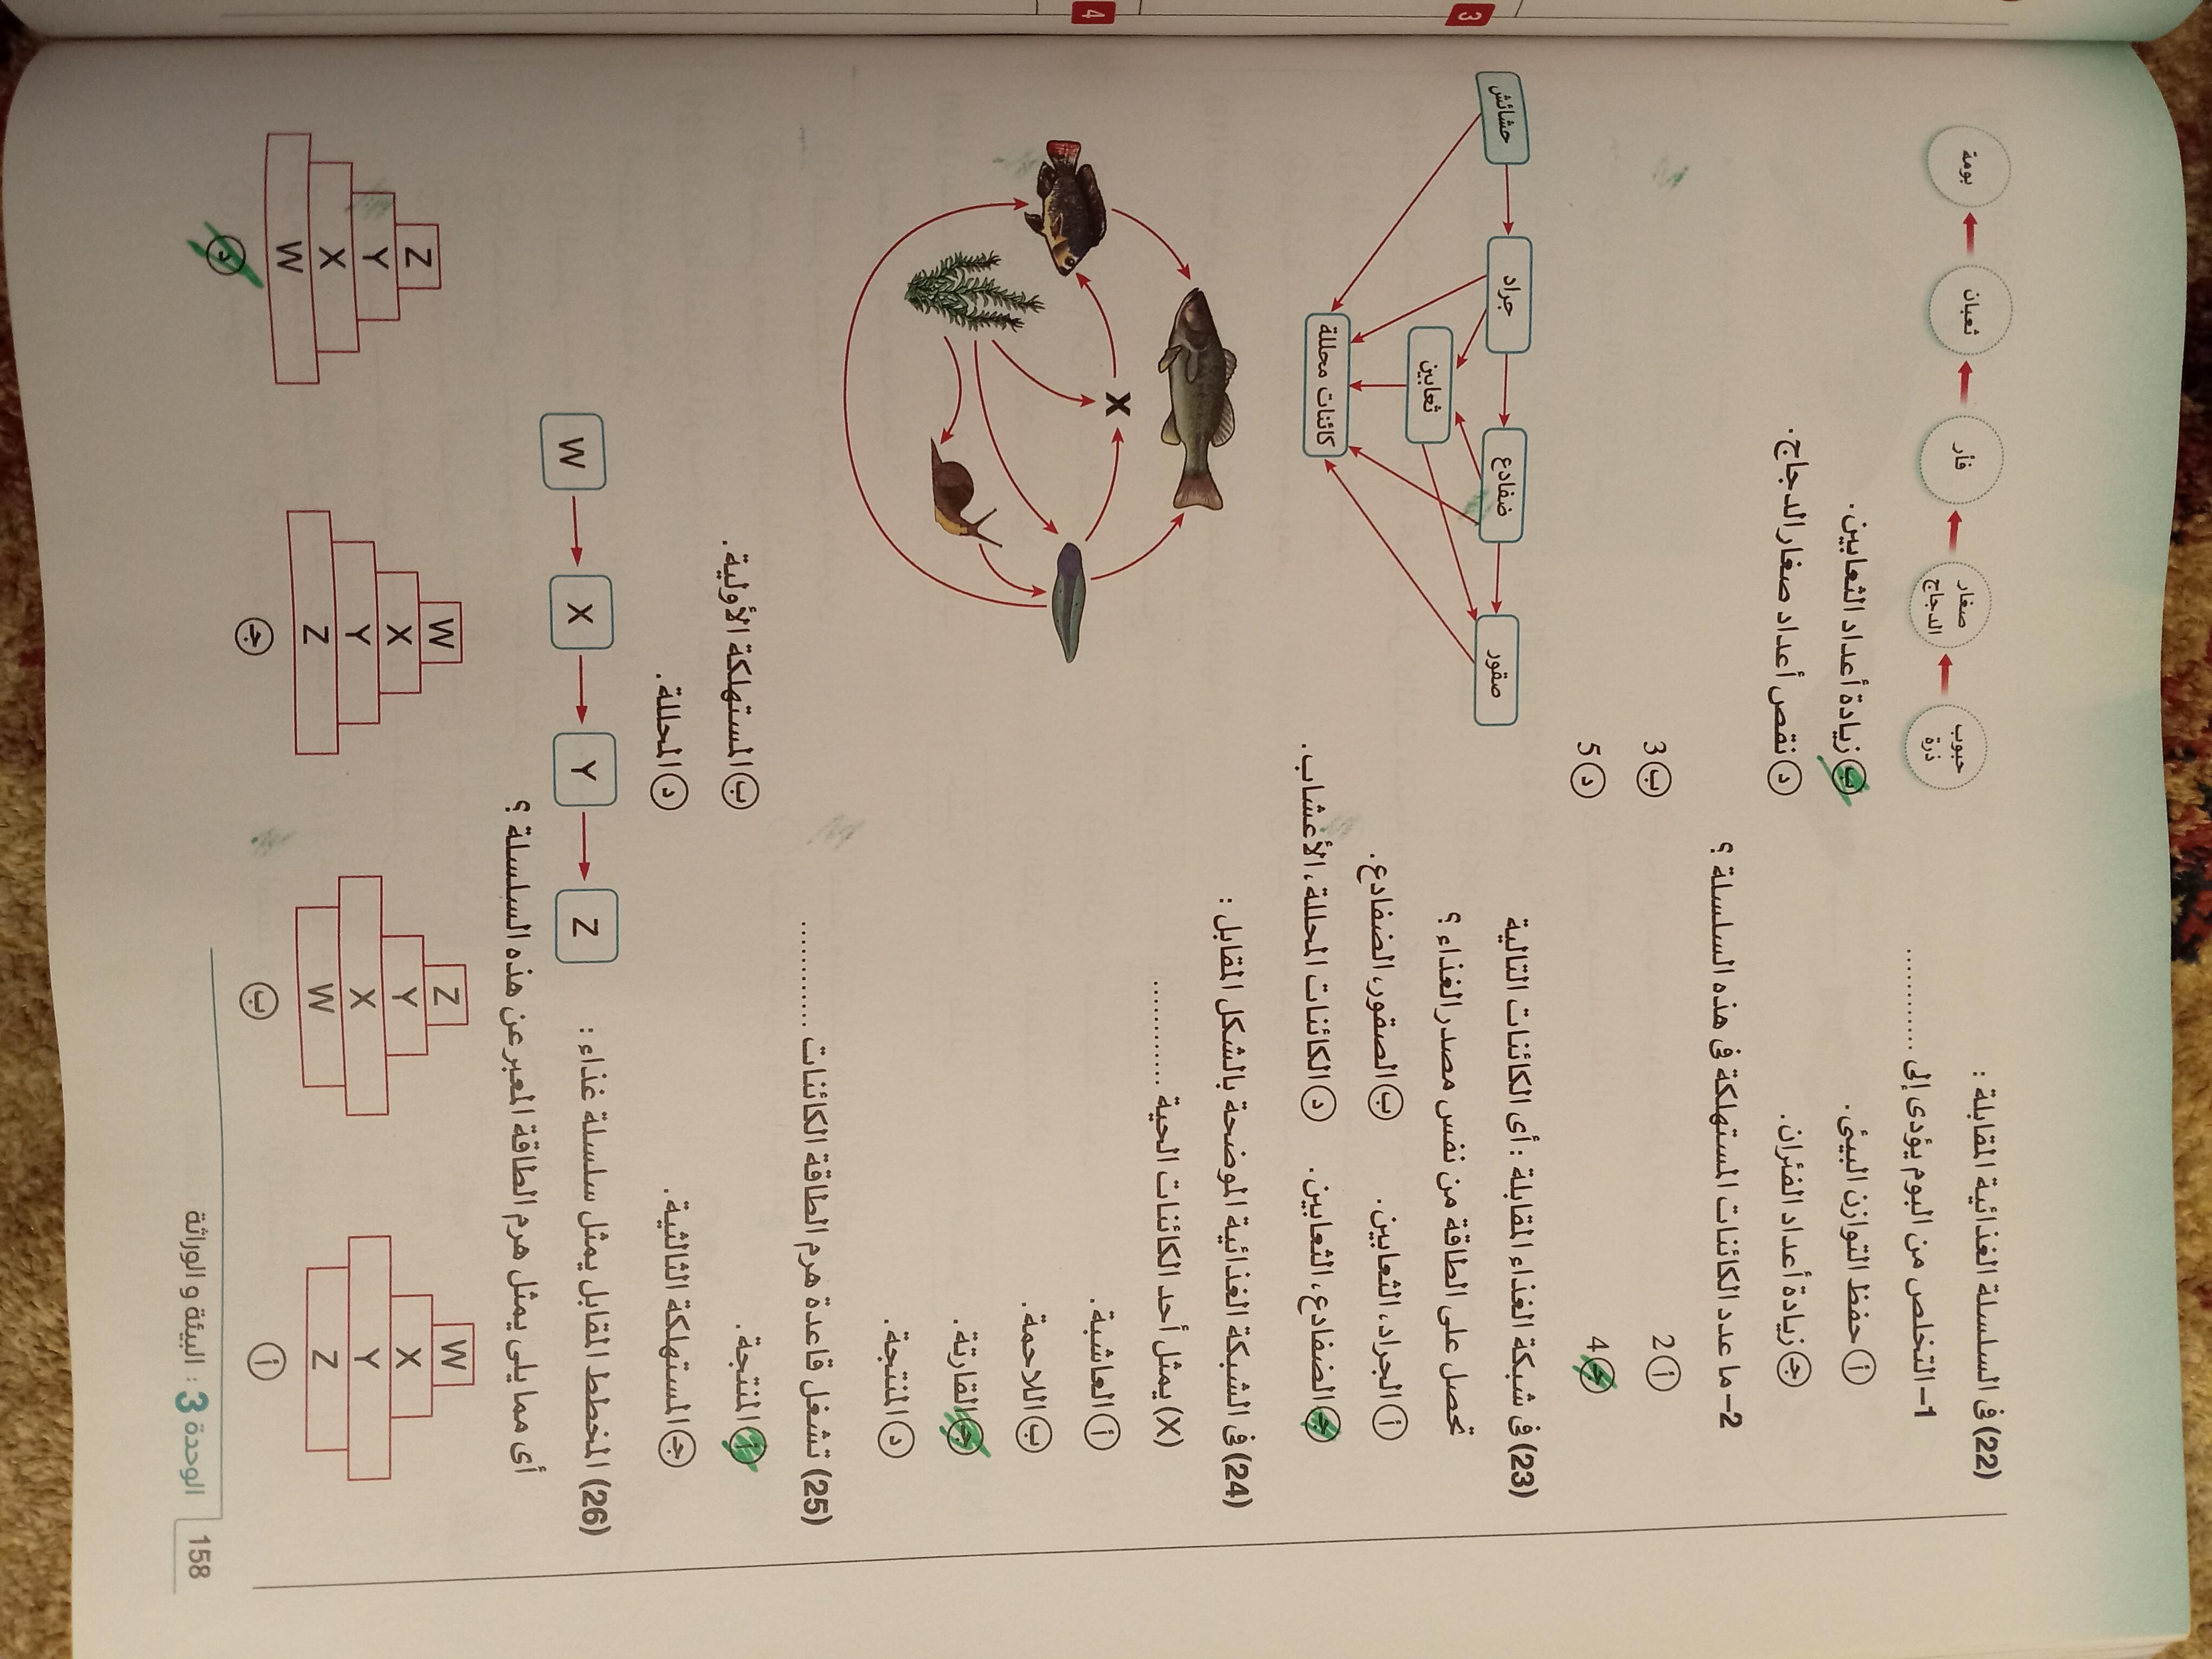 3
4
(22) في السلسلة الغذائية المقابلة :
حبوب ذرة
صغار الدجاج
فأر
ثعبان
بومة
1- التخلص من البوم يؤدى إلى ............
أ حفظ التوازن البيئى.
ب زيادة أعداد الثعابين.
ج زيادة أعداد الفئران.
د نقص أعداد صغار الدجاج.
2- ما عدد الكائنات المستهلكة فى هذه السلسلة ؟
أ 2
ب 3
ج 4
د 5
(23) فى شبكة الغذاء المقابلة : أى الكائنات التالية
تحصل على الطاقة من نفس مصدر الغذاء ؟
أ الجراد، الثعابين.
ب الصقور، الضفادع.
ج الضفادع، الثعابين.
د الكائنات المحللة، الأعشاب.
حشائش
جراد
ضفادع
صقور
ثعابين
كائنات محللة
(24) فى الشبكة الغذائية الموضحة بالشكل المقابل :
(X) يمثل أحد الكائنات الحية ............
أ العاشبة.
ب اللاحمة.
ج القارتة.
د المنتجة.
X
(25) تشغل قاعدة هرم الطاقة الكائنات ............
أ المنتجة.
ب المستهلكة الأولية.
ج المستهلكة الثالثية.
د المحللة.
(26) المخطط المقابل يمثل سلسلة غذاء :
W X Y Z
أى مما يلى يمثل هرم الطاقة المعبر عن هذه السلسلة ؟
W
X
Y
Z
أ
Z
Y
X
W
ب
W
X
Y
Z
ج
Z
Y
X
W
د
158 الوحدة 3 : البيئة والوراثة